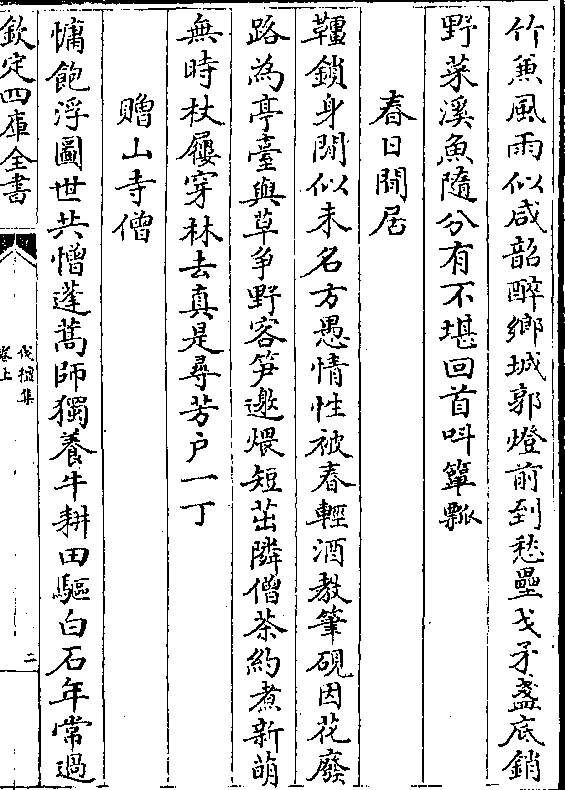 竹兼風雨似咸韶醉鄉城郭燈前到愁壘戈矛盞底銷
野菜溪魚隨分有不堪回首叫簞瓢
春日閒居
韁鎖身閒似未名方愚情性被春輕酒教筆硯因花廢
路為亭臺與草爭野客笋邀煨短茁隣僧茶約煮新萌
無時杖屨穿林去真是尋芳户一丁
贈山寺僧
慵飽浮圖世共憎蓬蒿師獨養牛耕田驅白石年常過
欽定四庫全書
伐檀集
卷上
二